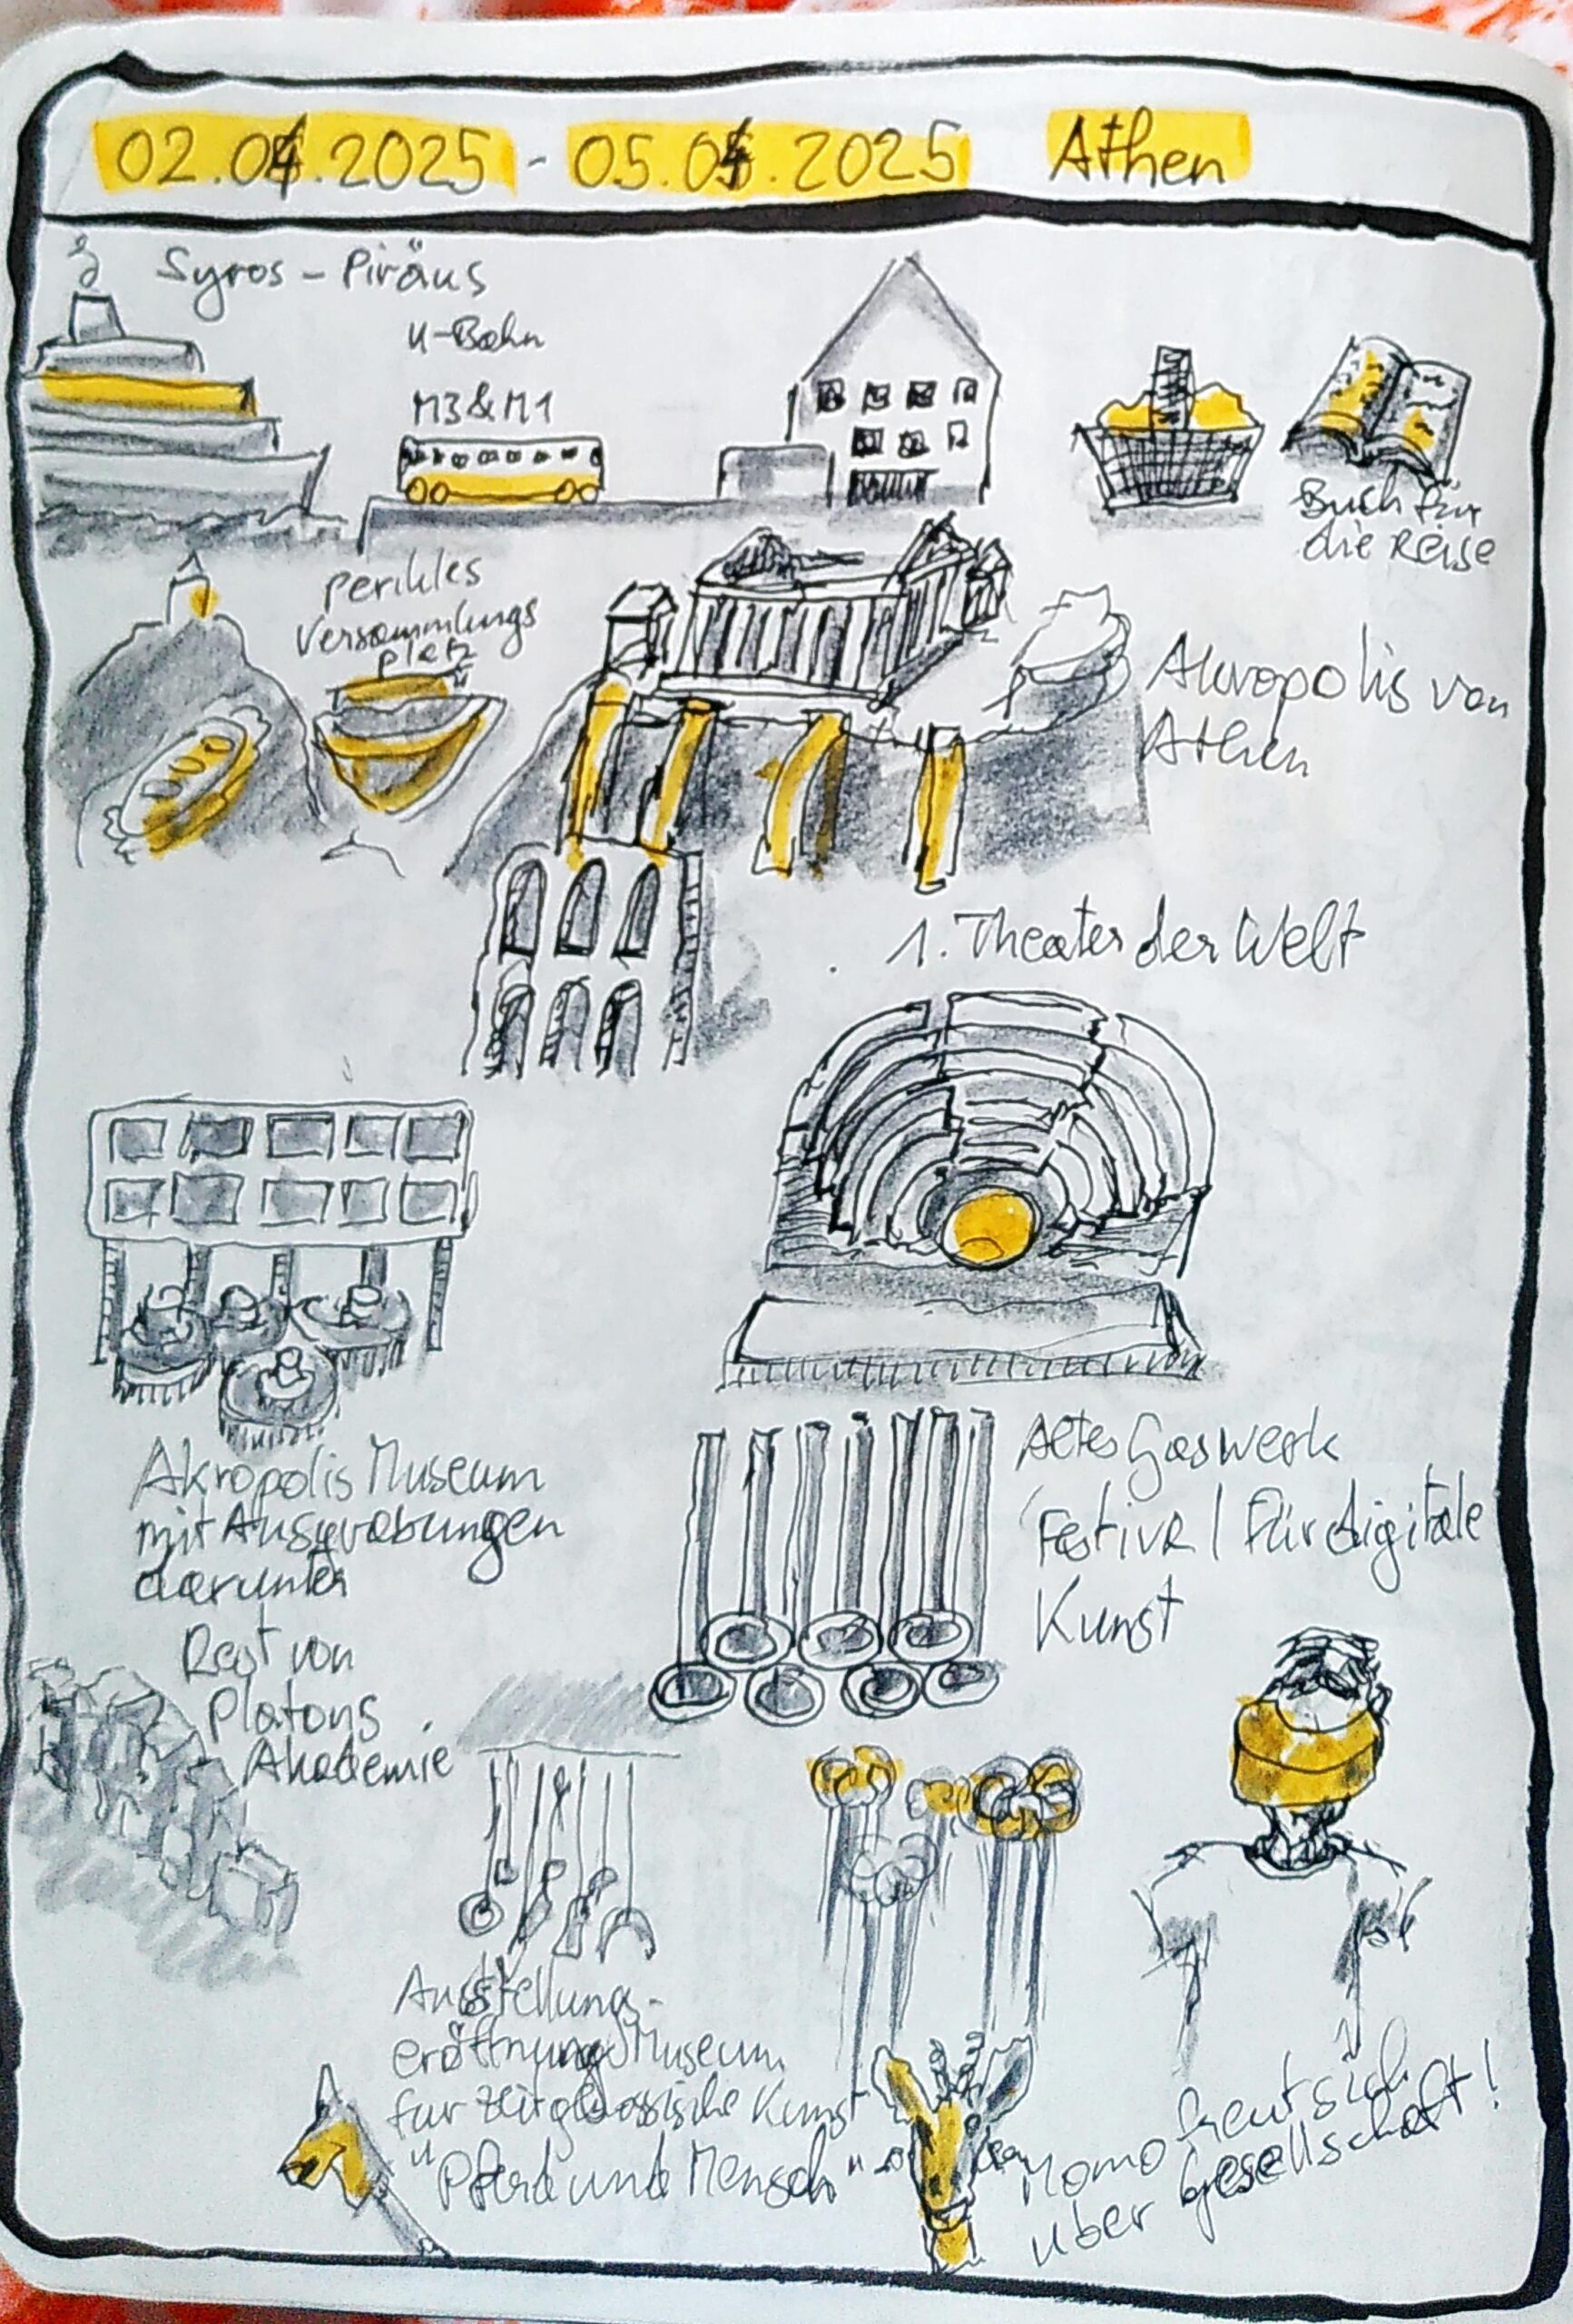 02.04.2025 - 05.04.2025 Athen
Syros - Piräus
U-Bahn
M3 & M1
Buch für
die Reise
Perikles
Versammlungs
platz
Akropolis von
Athen
1. Theater der Welt
Akropolis Museum
mit Ausgrabungen
darunter
Altes Gaswerk
Festival für digitale
Kunst
Rest von
Platons
Akademie
Ausstellungs-
eröffnung Museum
für zeitgenössische Kunst
"Pferd und Mensch"
Momo freut sich
über Gesellschaft!